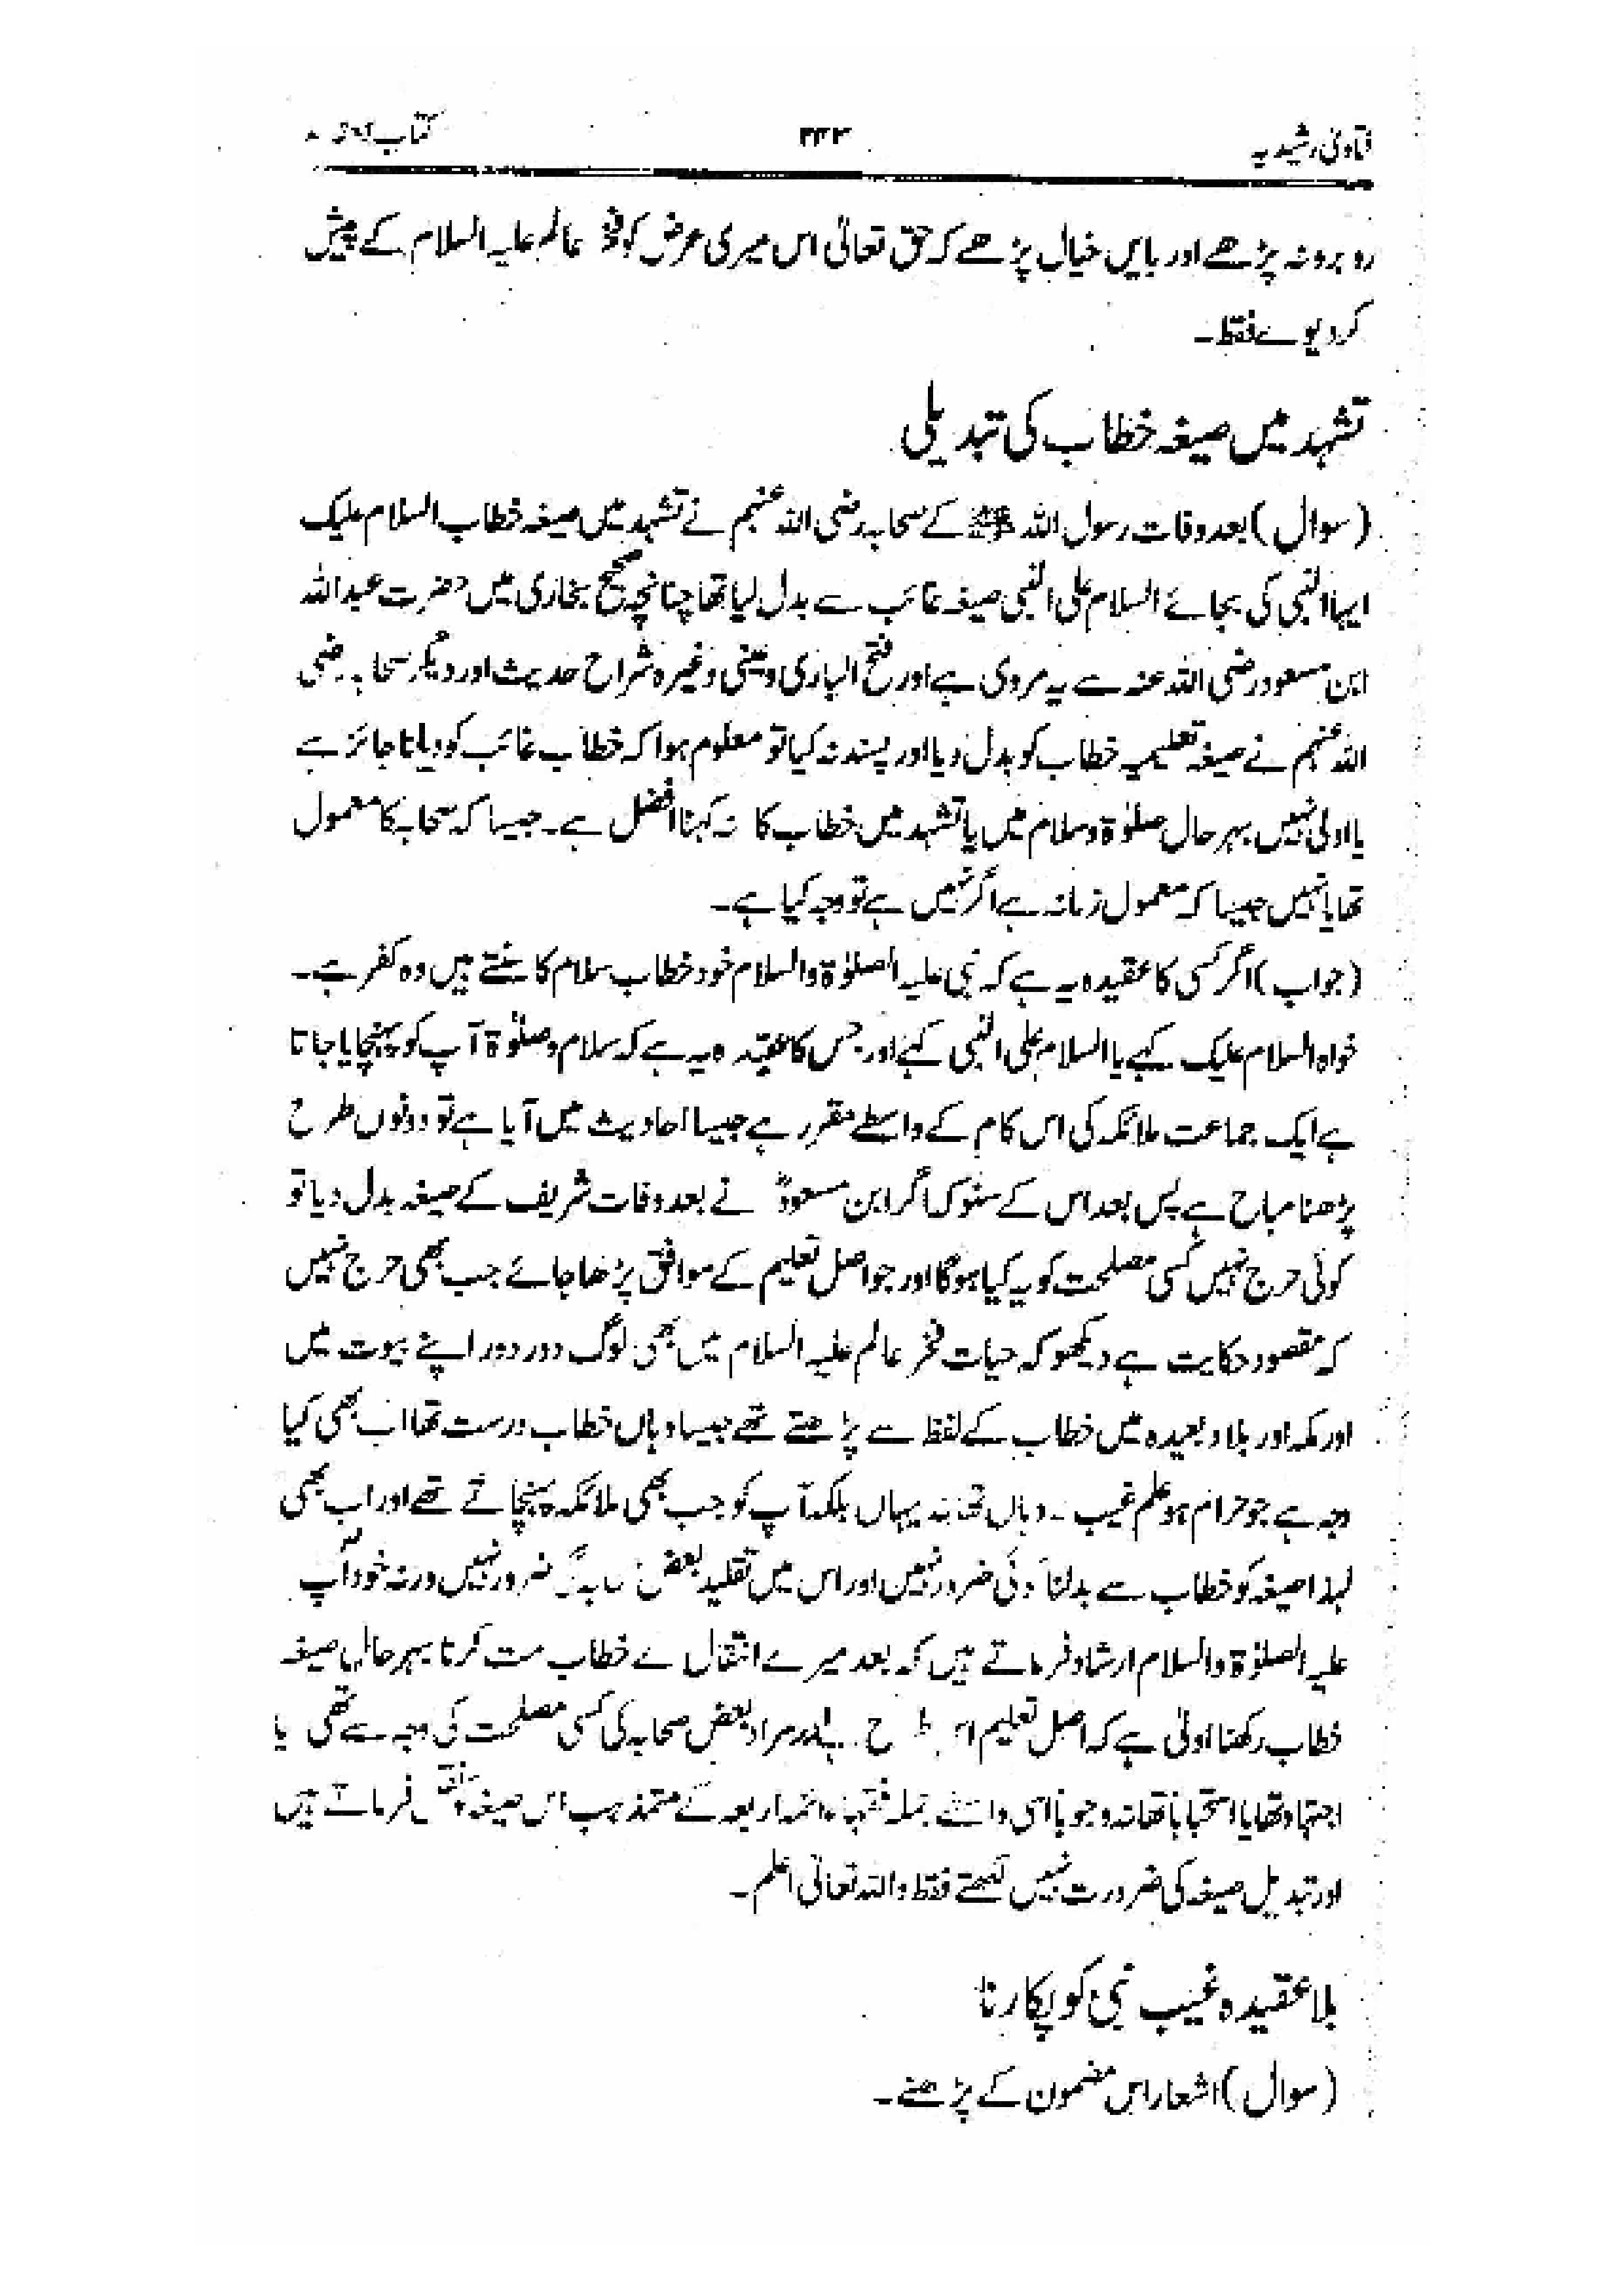 فتاویٰ رشیدیہ
۲۳۳
کتاب
روبرو نہ پڑھے اور بایں خیال پڑھے کہ حق تعالیٰ اس میری عرض کو فخر عالم علیہ السلام کے پیش
کر دیوے فقط۔
تشہد میں صیغہ خطاب کی تبدیلی
(سوال) بعد وفات رسول اللہ ﷺ کے صحابہ رضی اللہ عنہم نے تشہد میں صیغہ خطاب السلام علیک
ایہا النبی کی بجائے السلام علی النبی صیغہ غائب سے بدل لیا تھا چنانچہ صحیح بخاری میں حضرت عبد اللہ
ابن مسعود رضی اللہ عنہ سے یہ مروی ہے اور فتح الباری و عینی وغیرہ شراح حدیث اور دیگر صحابہ رضی
اللہ عنہم نے صیغہ تعلیمیہ خطاب کو بدل دیا اور پسند نہ کیا تو معلوم ہوا کہ خطاب غائب کو جائز ہے
یا اولیٰ نہیں بہر حال صلوٰۃ و سلام میں یا تشہد میں خطاب کا نہ کہنا افضل ہے۔ جیسا کہ صحابہ کا معمول
تھا یا نہیں جیسا کہ معمول زمانہ ہے اگر نہیں ہے تو وجہ کیا ہے۔
(جواب) اگر کسی کا عقیدہ یہ ہے کہ نبی علیہ الصلوٰۃ والسلام خود خطاب سلام کا سنتے ہیں وہ کفر ہے۔
خواہ السلام علیک کہے یا السلام علی النبی کہے اور جس کا عقیدہ یہ ہے کہ سلام و صلوٰۃ آپ کو پہنچایا جاتا
ہے ایک جماعت ملائکہ کی اس کام کے واسطے مقرر ہے جیسا احادیث میں آیا ہے تو دونوں طرح
پڑھنا مباح ہے پس بعد اس کے سنو کہ اگر ابن مسعودؓ نے بعد وفات شریف کے صیغہ بدل دیا تو
کوئی حرج نہیں کسی مصلحت کو یہ کیا ہوگا اور جو اصل تعلیم کے موافق پڑھا جائے جب بھی حرج نہیں
کہ مقصود حکایت ہے دیکھو کہ حیات فخر عالم علیہ السلام میں بھی لوگ دور دور اپنے بیوت میں
اور مکہ اور بلاد بعیدہ میں خطاب کے لفظ سے پڑھتے تھے جیسا وہاں خطاب درست تھا اب بھی کیا
وجہ ہے جو حرام ہو علم غیب۔ وہاں تھا نہ یہاں بلکہ آپ کو جب بھی ملائکہ پہنچاتے تھے اور اب بھی
لہذا صیغہ کو خطاب سے بدلنا کوئی ضرور نہیں اور اس میں تقلید بعض صحابہ کی ضرور نہیں ورنہ خود آپ
علیہ الصلوٰۃ والسلام ارشاد فرماتے ہیں کہ بعد میرے انتقال کے خطاب مت کرنا بہر حال صیغہ
خطاب رکھنا اولیٰ ہے کہ اصل تعلیم اس طرح ہے اور مراد بعض صحابہ کی کسی مصلحت کی وجہ سے تھی یا
اجتہاد تھا یا استحباباً تھا نہ وجوباً اسی واسطے جملہ فقہاء ائمہ اربعہ کے اس صیغہ فرماتے ہیں
اور تبدیل صیغہ کی ضرورت نہیں لکھتے فقط واللہ تعالیٰ اعلم۔
بلا عقیدہ غیب نبی کو پکارنا
(سوال) اشعار اس مضمون کے پڑھنے۔